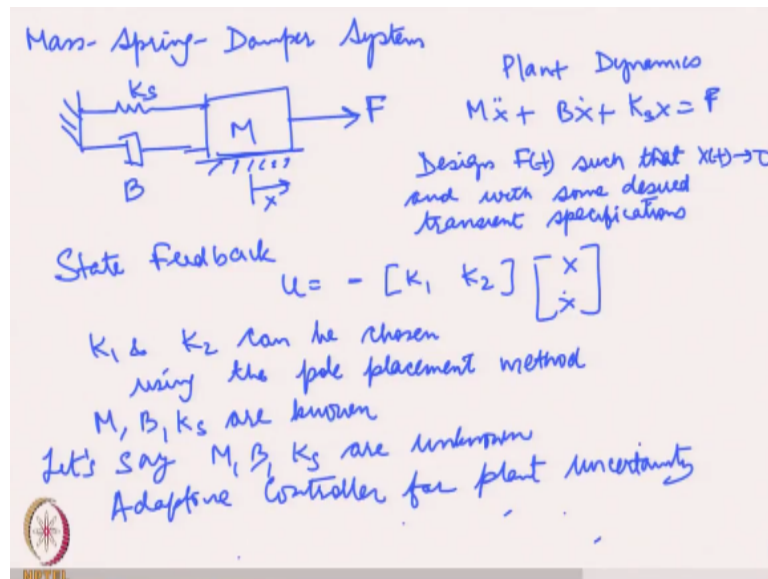 Mass-Spring-Damper System
Plant Dynamics
Ks
M
F
B
x
Mẍ + Bẋ + Ksx = F
Design F(t) such that x(t)→
and with some desired
transient specifications
State Feedback
u = - [K1 K2] [x ẋ]
K1 & K2 can be chosen
using the pole placement method
M, B, Ks are known
Let's say M, B, Ks are unknown
Adaptive Controller for plant uncertainty
NPTEL